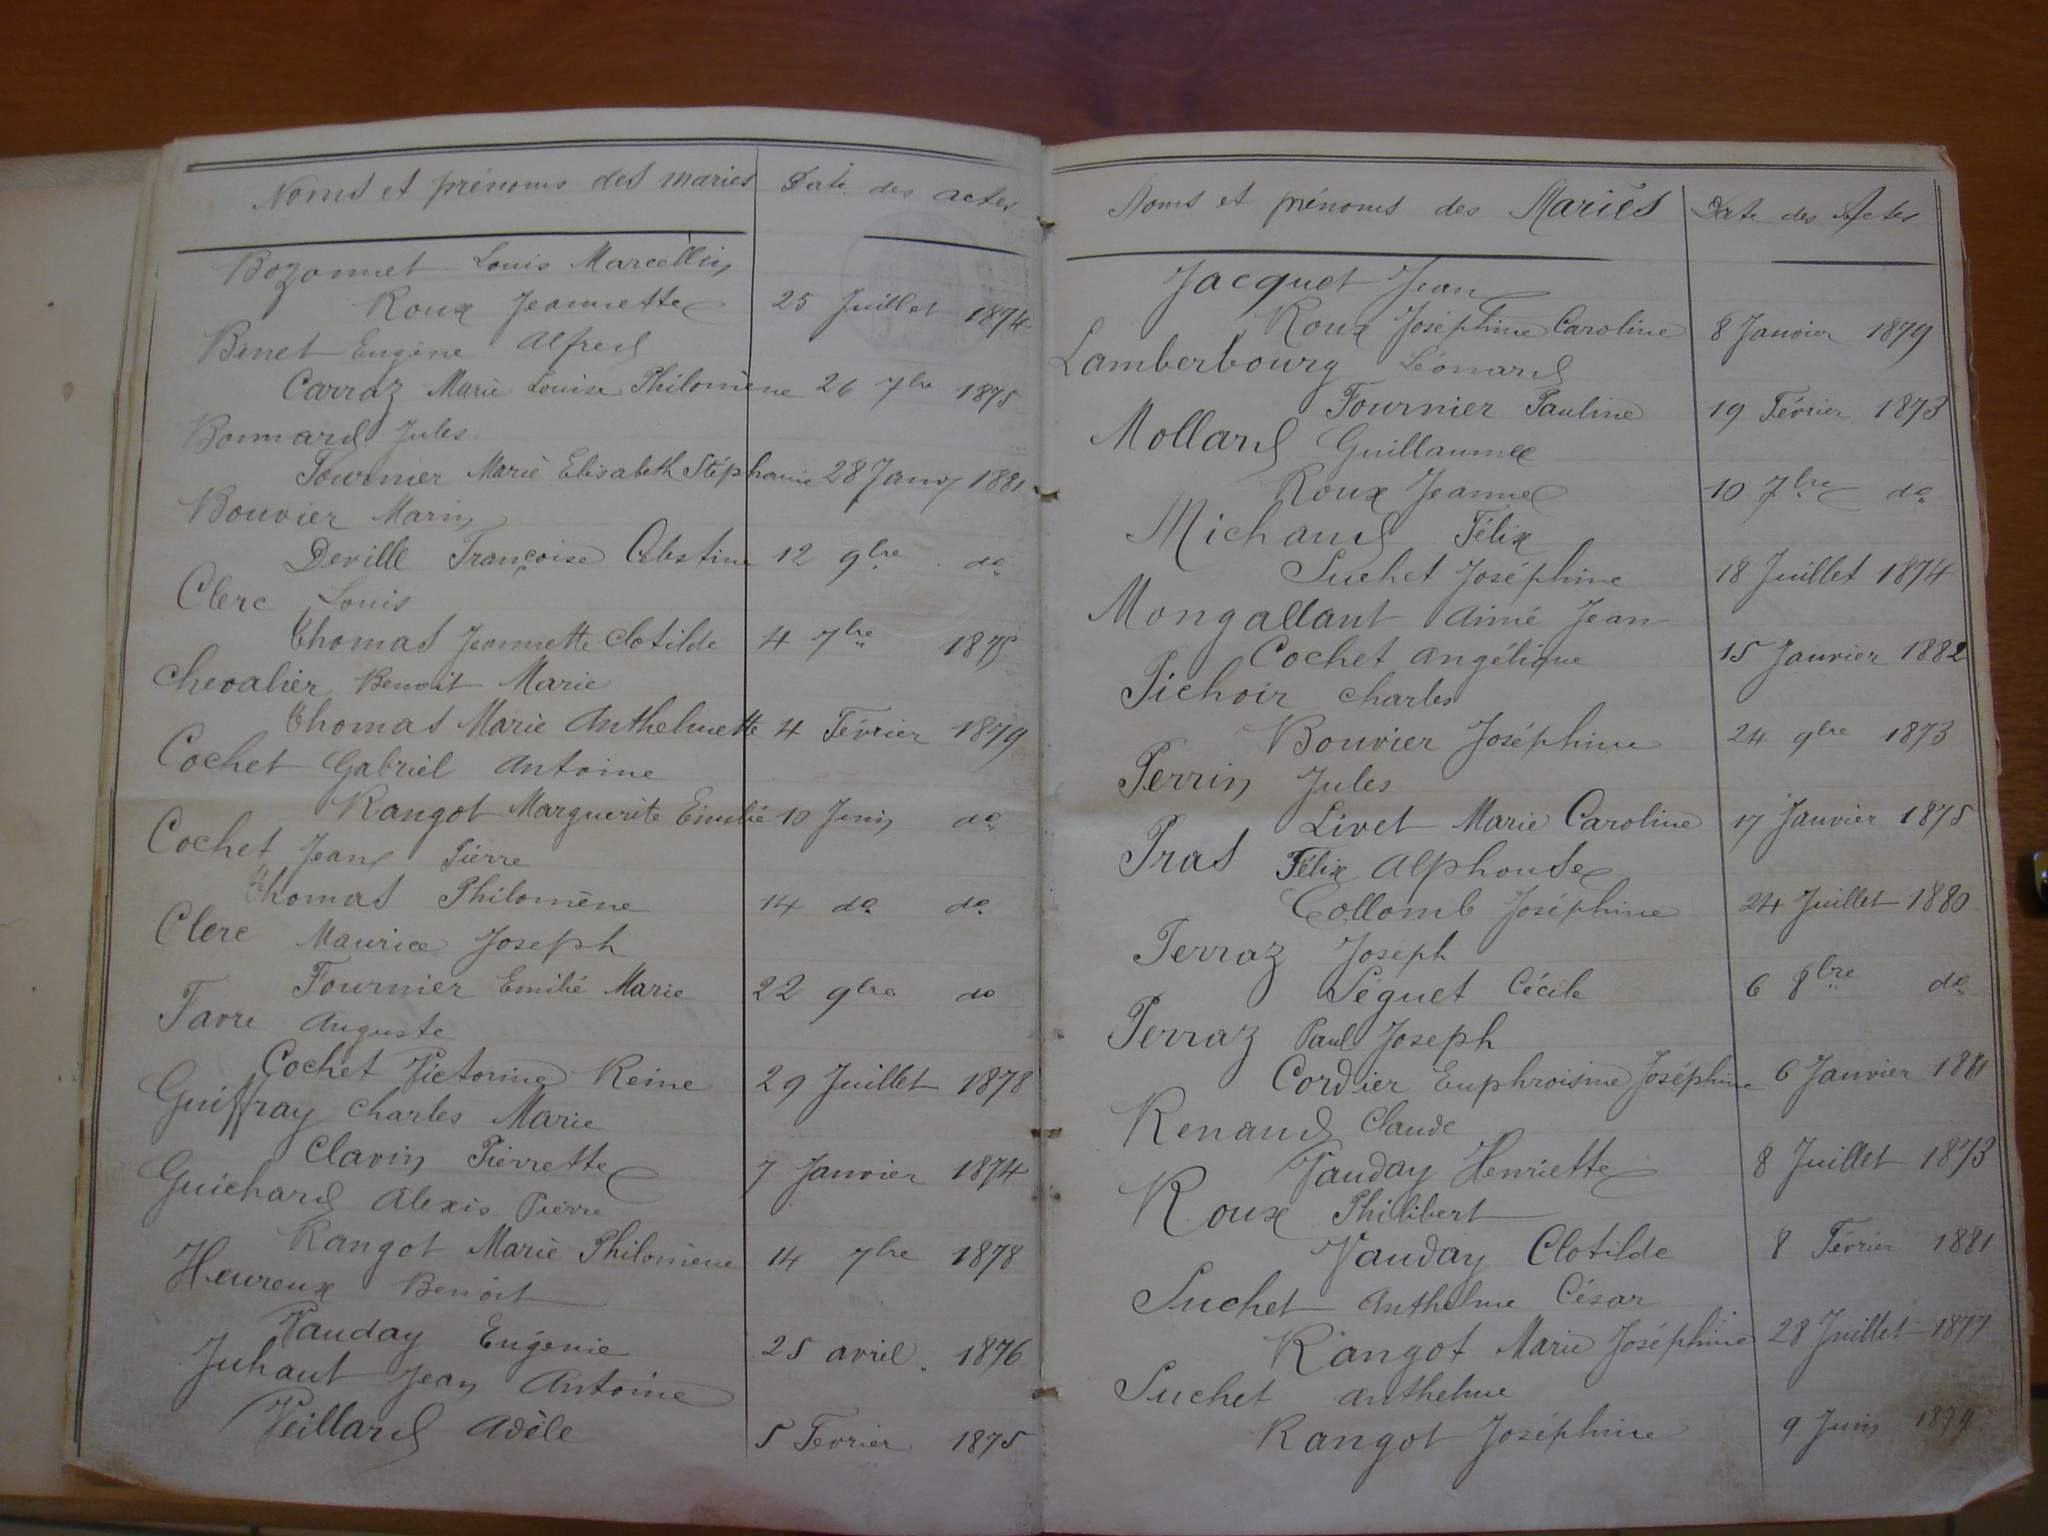 Noms et prénoms des mariés Date des actes
Bozonnet Louis Marcellin
Roux Jeannette 25 Juillet 1874
Binet Eugène Alfred
Carraz Marie Louise Philomène 26 7bre 1875
Bonnard Jules
Fournier Marie Elisabeth Stéphanie 28 Janv 1881
Bouvier Marin
Deville Françoise Célestine 12 9bre do
Clerc Louis
Thomas Jeannette Clotilde 4 7bre 1875
Chevalier Benoit Marie
Thomas Marie Anthelmette 4 Février 1879
Cochet Gabriel Antoine
Rangot Marguerite Emilie 10 Juin do
Cochet Jean Pierre
Thomas Philomène 14 do do
Clerc Maurice Joseph
Fournier Emilie Marie 22 9bre do
Favre Auguste
Cochet Victorine Reine 29 Juillet 1878
Guiffray Charles Marie
Clavin Pierrette 7 Janvier 1874
Guichard Alexis Pierre
Rangot Marie Philomène 14 7bre 1878
Heureux Benoit
Vauday Eugénie 25 avril. 1876
Juhaut Jean Antoine
Veillard Adèle 5 Fevrier 1875
Noms et prénoms des Mariés Date des Actes
Jacquet Jean
Roux Joséphine Caroline 8 Janvier 1879
Lamberbourg Léonard
Fournier Pauline 19 Février 1873
Mollard Guillaume
Roux Jeanne 10 7bre do
Michaud Félix
Suchet Joséphine 18 Juillet 1874
Mongallant Aimé Jean
Cochet Angélique 15 Janvier 1882
Pichoir Charles
Bouvier Joséphine 24 9bre 1873
Perrin Jules
Livet Marie Caroline 17 Janvier 1875
Pras Félix Alphonse
Collomb Joséphine 24 Juillet 1880
Perraz Joseph
Séguet Cécile 6 8bre do
Perraz Paul Joseph
Cordier Euphroisine Joséphine 6 Janvier 1881
Renaud Claude
Vauday Henriette 8 Juillet 1873
Roux Philibert
Vauday Clotilde 8 Février 1881
Suchet Anthelme César
Rangot Marie Joséphine 28 Juillet 1877
Suchet Anthelme
Rangot Joséphine 9 Juin 1879